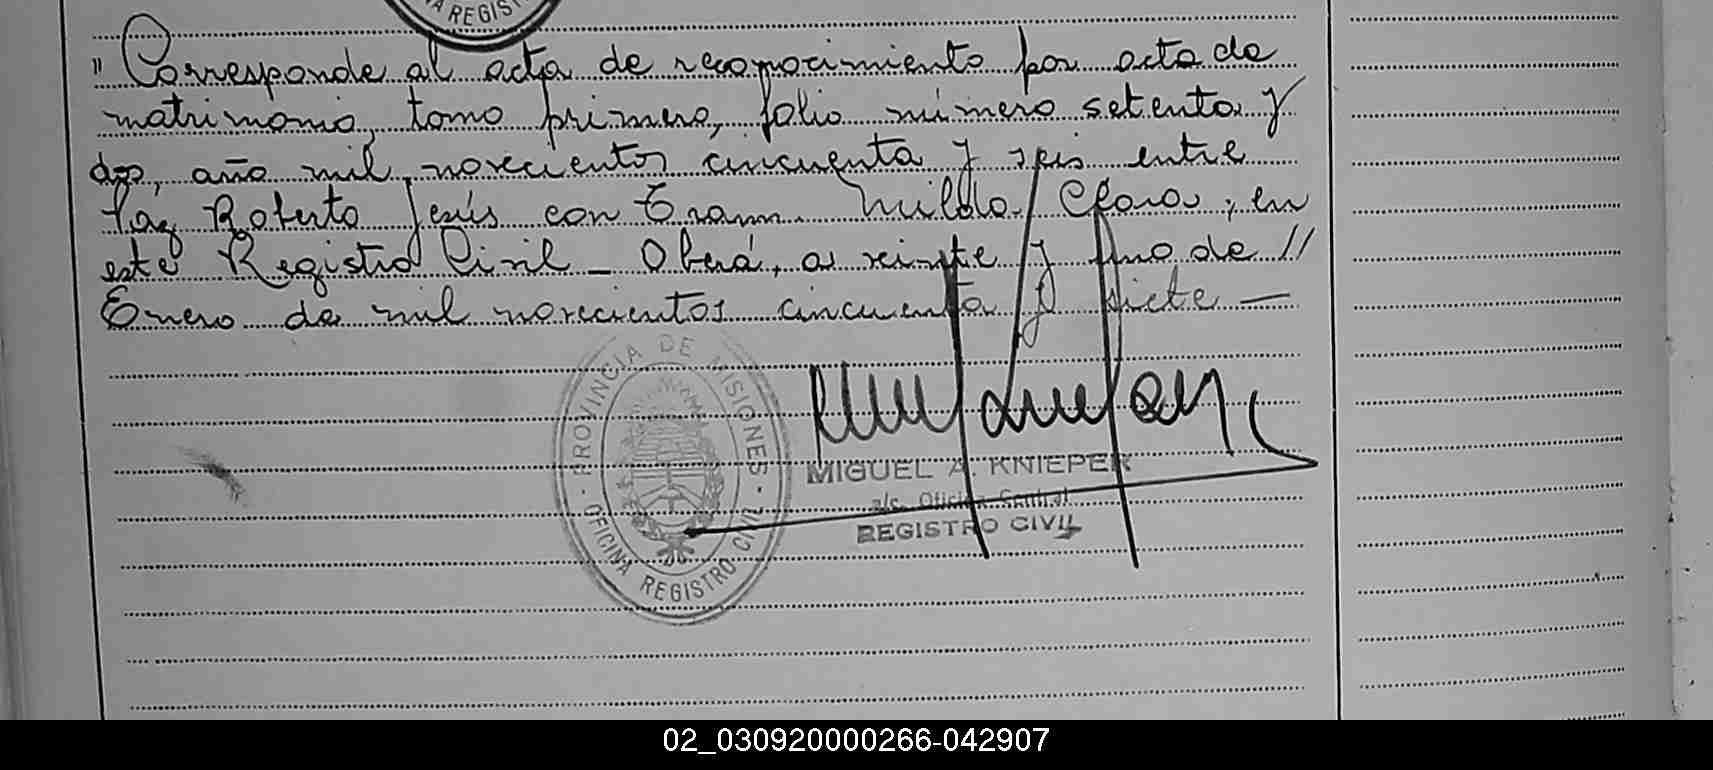 A REGIST
" Corresponde al acta de reconocimiento por acta de
matrimonio, tomo primero, folio número setenta y
dos, año mil novecientos cincuenta y seis entre
Paz Roberto Jesús con Hilda Clara; en
este Registro Civil – Oberá, a veinte y uno de //
Enero de mil novecientos cincuenta y siete —
PROVINCIA DE MISIONES
OFICINA REGISTRO CIVIL
MIGUEL A. KNIEPER
a/c. Oficina Central
REGISTRO CIVIL
02_030920000266-042907